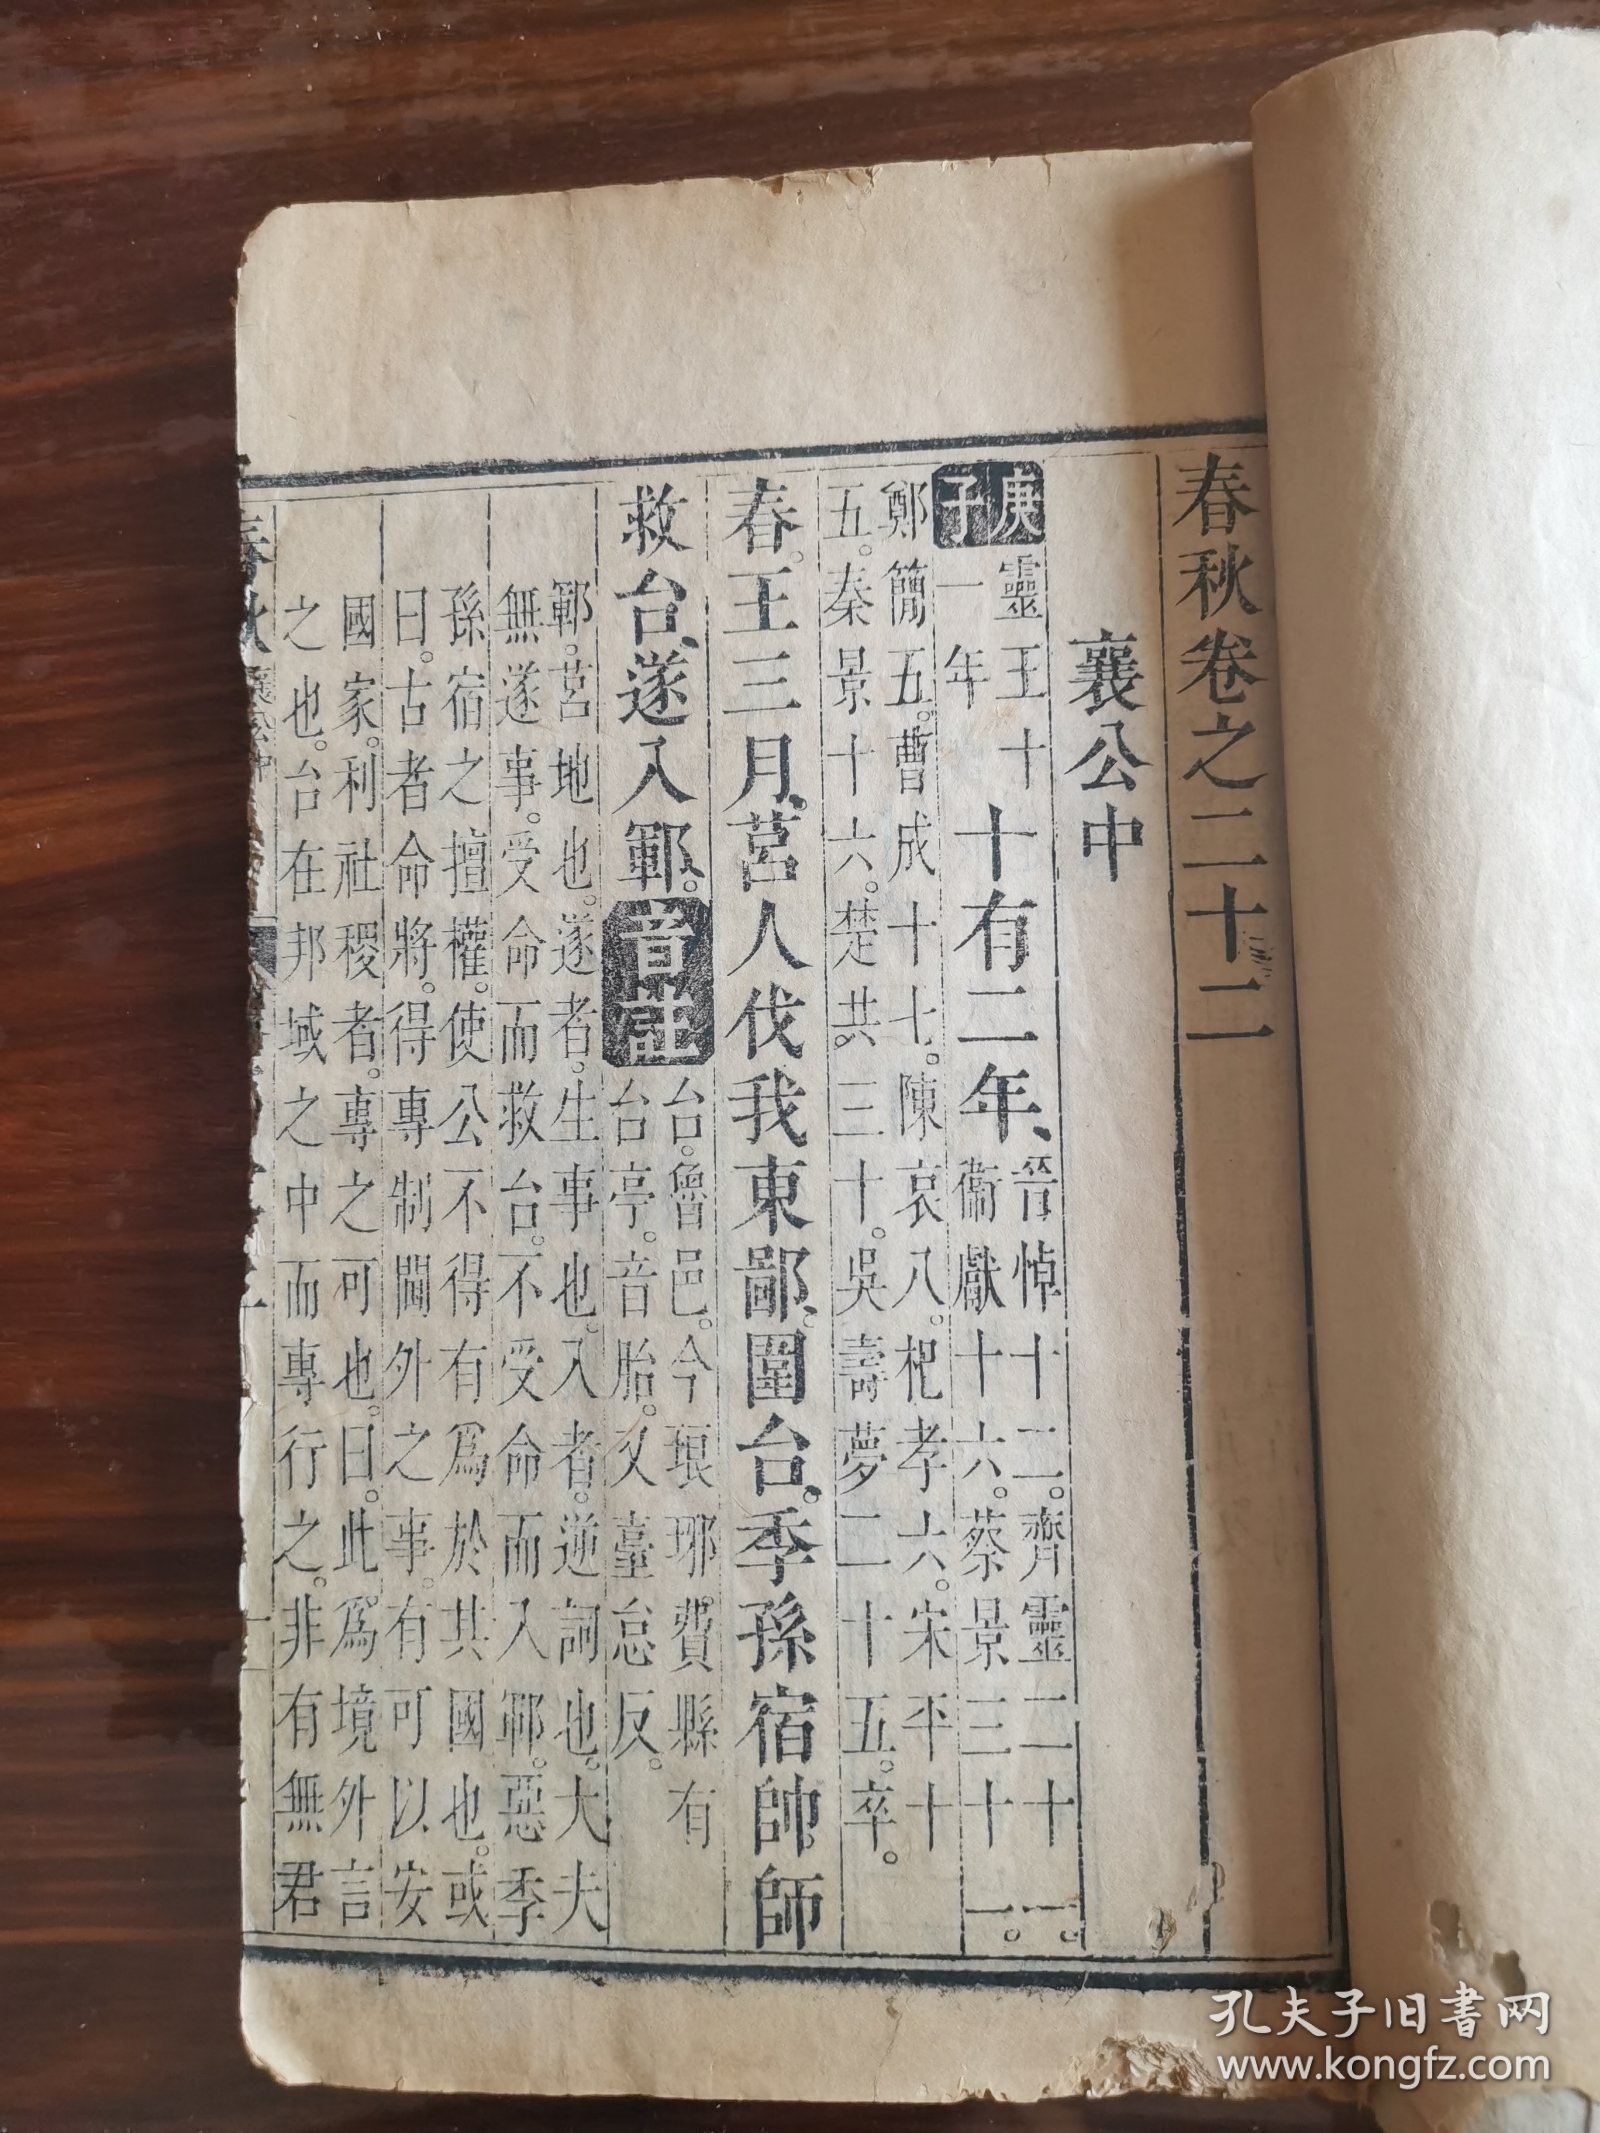 春秋卷之二十二
襄公中
庚子
靈王十
一年
十有二年、
晉悼十二。齊靈二十一。
衞獻十六。蔡景三十一。
鄭簡五。曹成十七。陳哀八。杞孝六。宋平十
五。秦景十六。楚共三十。吳壽夢二十五。卒。
春。王三月。莒人伐我東鄙。圍台。季孫宿帥師
救台、遂入鄆。
音註
台。魯邑。今琅琊。費縣有
台亭。音胎。又臺怠反。
鄆。莒地也。遂者。生事也。入者。逆詞也。大夫
無遂事。受命而救台。不受命而入鄆。惡季
孫宿之擅權。使公不得有爲於其國也。或
曰。古者命將。得專制閫外之事。有可以安
國家。利社稷者。專之可也。曰。此爲境外言
之也。台在邦域之中而專行之。非有無君
春秋
襄公中
孔夫子旧书网
www.kongfz.com